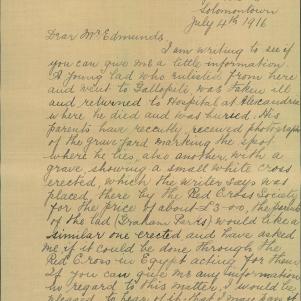 Solomontown
July 4th 1916
Dear Mr Edmunds
I am writing to see if
you can give me a little information.
A young lad who enlisted from here
and went to Gallipoli, was taken ill
and returned to Hospital at Alexandria
where he died and was buried. His
parents have recently received photograph
of the graveyard marking the spot
where he lies, also another, with a
grave, showing a small white cross
erected, which the writer says was
placed there by the Red Cross Society
for the price of about £3-00, the parents
of the lad (Graham Parks) would like a
similar one erected and have asked
me if it could be done through the
Red Cross in Egypt acting for them
If you can give me any information
in regard to this matter, I would be
pleased to hear of it, that I may